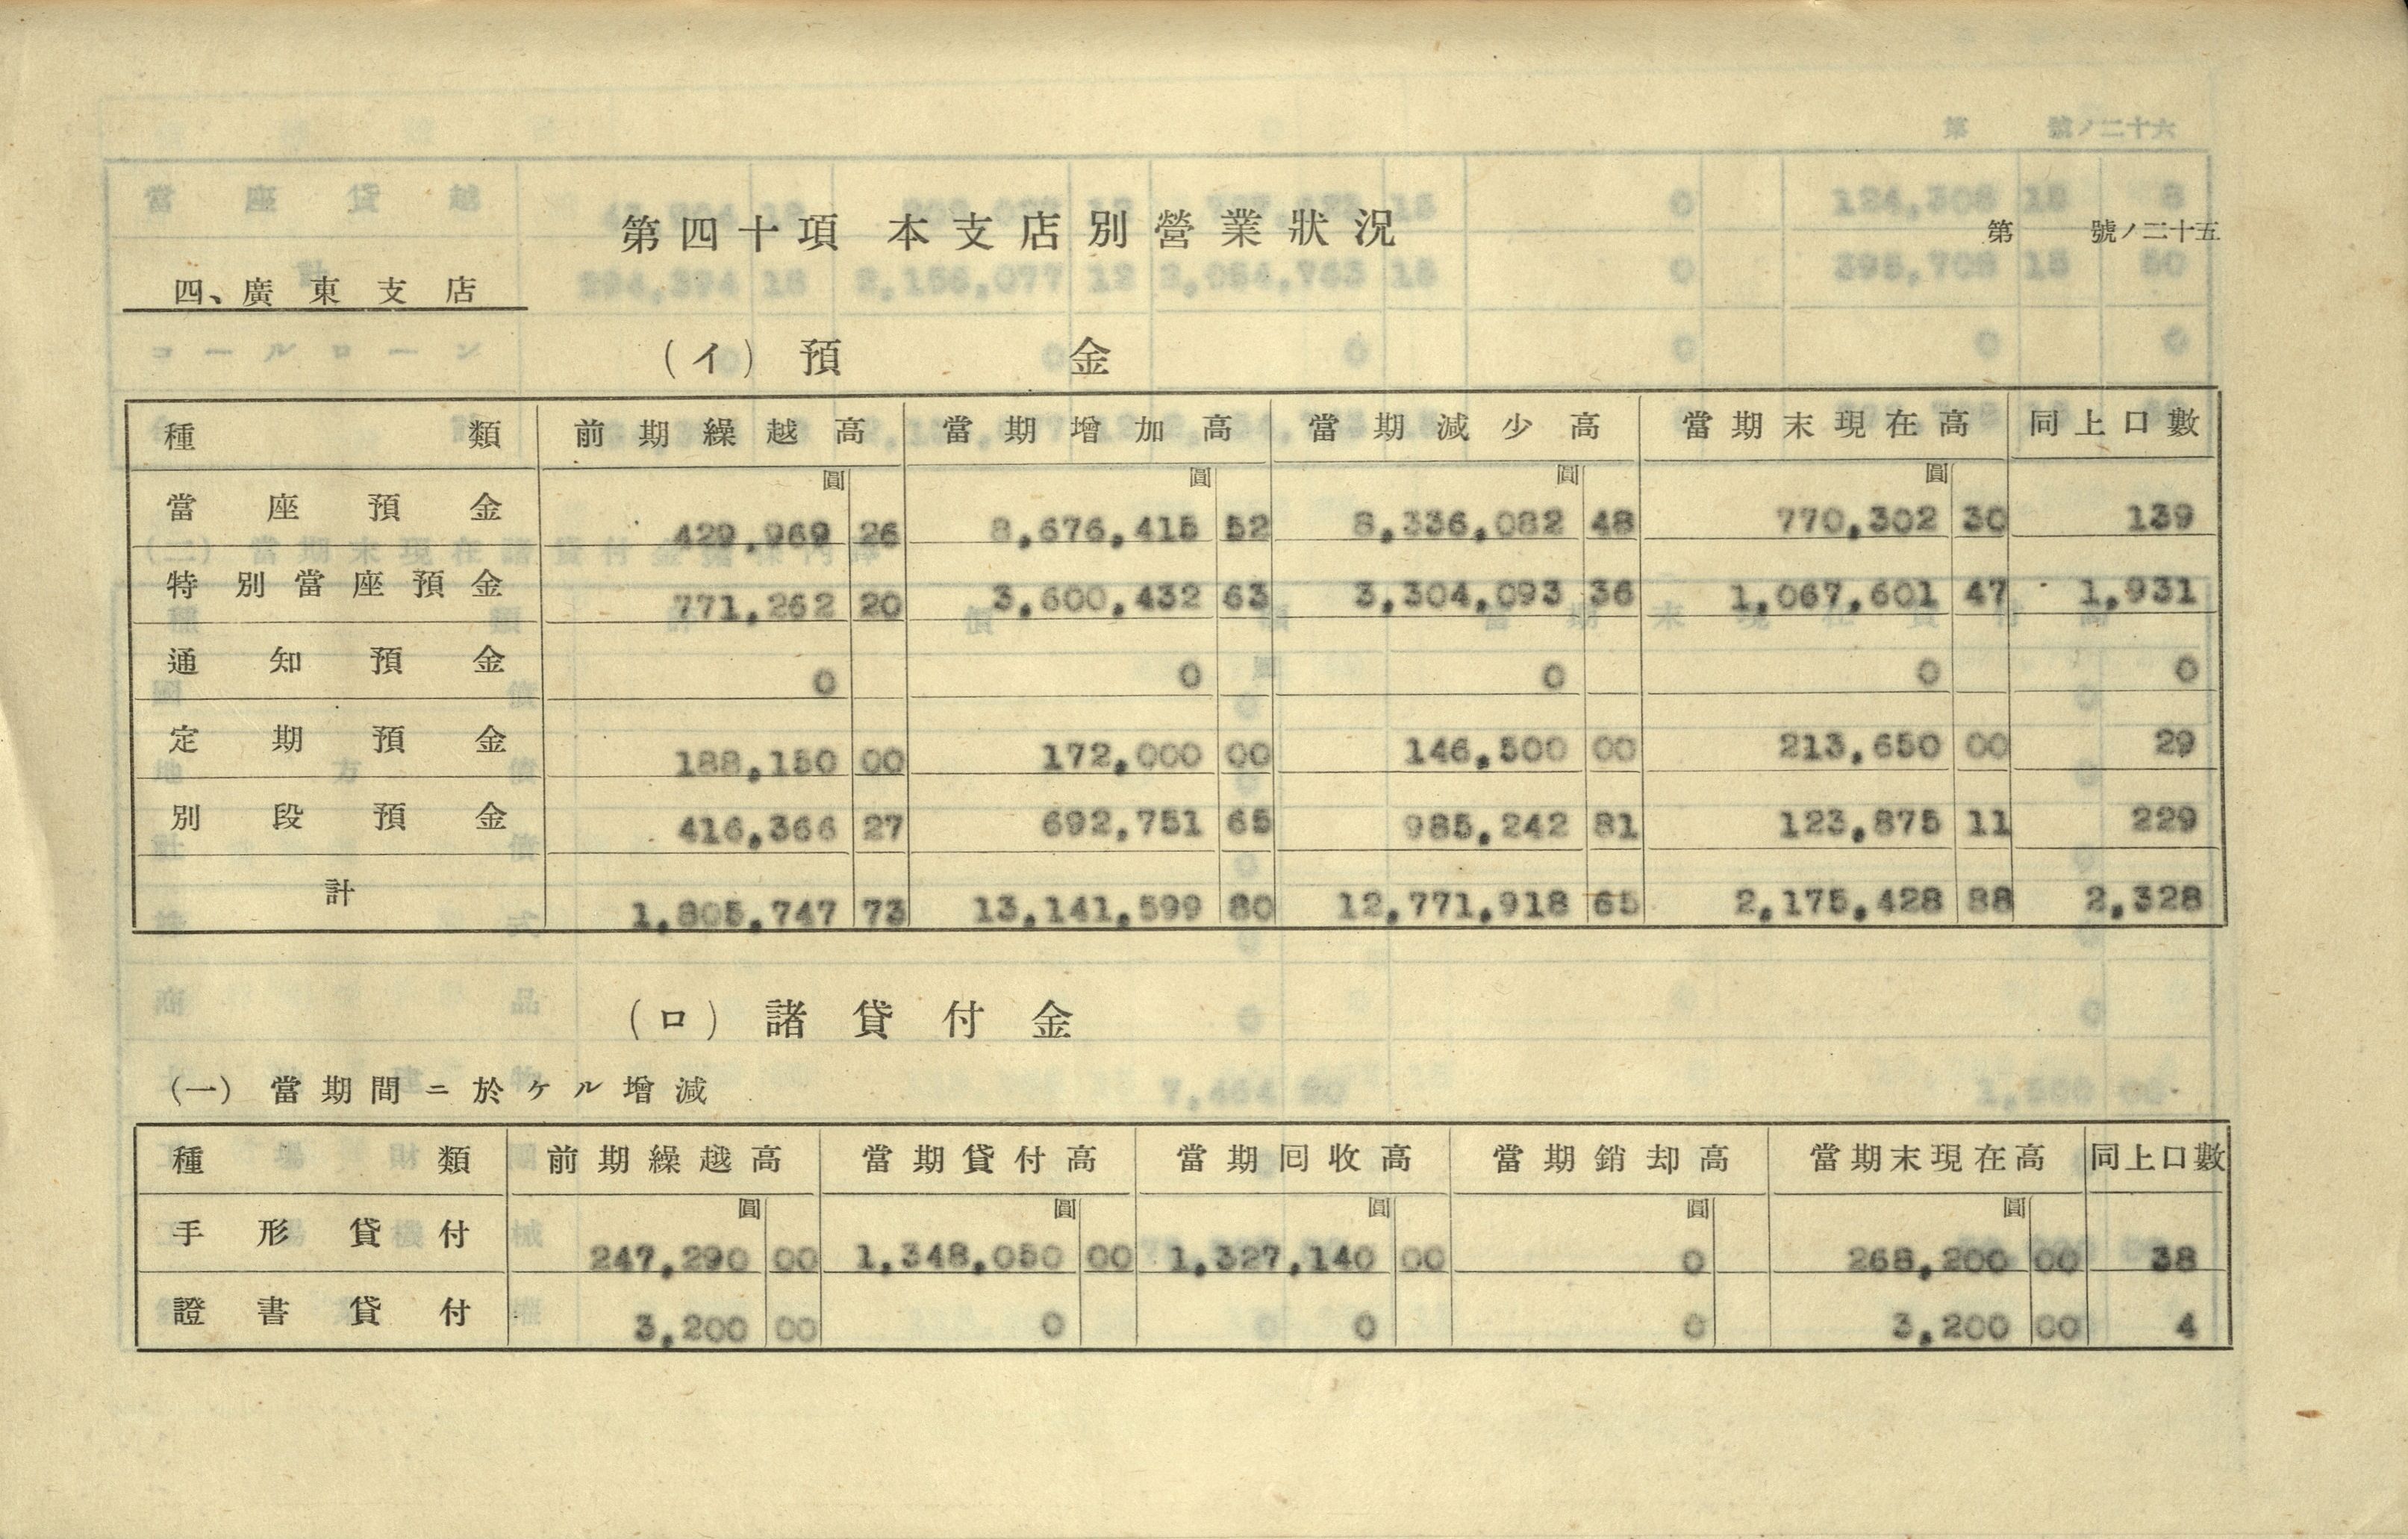 第四十項 本支店別營業狀況
第 號ノ二十五
四、廣東支店
(イ) 預金
種類 前期繰越高 當期增加高 當期減少高 當期末現在高 同上口數
圓 圓 圓 圓
當座預金 429,969 26 8,676,415 52 8,336,082 48 770,302 30 139
特別當座預金 771,262 20 3,600,432 63 3,304,093 36 1,067,601 47 1,931
通知預金 0 0 0 0 0
定期預金 188,150 00 172,000 00 146,500 00 213,650 00 29
別段預金 416,366 27 692,751 65 985,242 81 123,875 11 229
計 1,805,747 73 13,141,599 80 12,771,918 65 2,175,428 88 2,328
(ロ) 諸貸付金
(一) 當期間ニ於ケル增減
種類 前期繰越高 當期貸付高 當期回收高 當期銷却高 當期末現在高 同上口數
圓 圓 圓 圓 圓
手形貸付 247,290 00 1,348,050 00 1,327,140 00 0 268,200 00 38
證書貸付 3,200 00 0 0 0 3,200 00 4